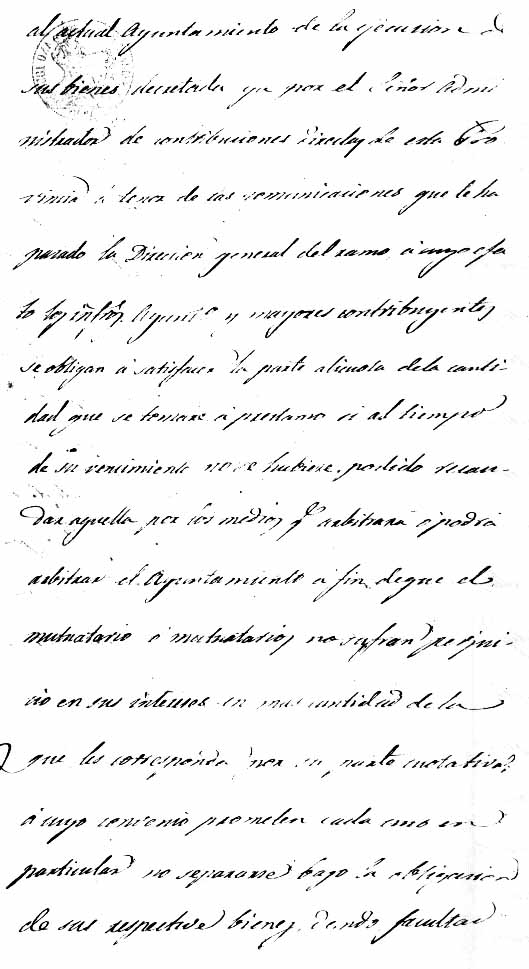 al actual Ayuntamiento de la ejecucion de
sus bienes decretada ya por el Señor Admi
nistrador de contribuciones directas de esta Pro
vincia á tenor de las comunicaciones que le ha
pasado la Direccion general del ramo, á cuyo efec
to los Ayunt.º y mayores contribuyentes
se obligan á satisfacer la parte alicuota de la canti-
dad que se tomare á prestamo si al tiempo
de su vencimiento no se hubiere podido recau-
dar aquella por los medios q.e arbitrara ó podrá
arbitrar el Ayuntamiento á fin de que el
mutuatario ó mutuatarios no sufran perjui-
cio en sus intereses en mas cantidad de la
que les corresponda por su parte cuotativa,
á cuyo convenio prometen cada uno en
particular no separarse bajo la obligacion
de sus respective bienes, dando facultad